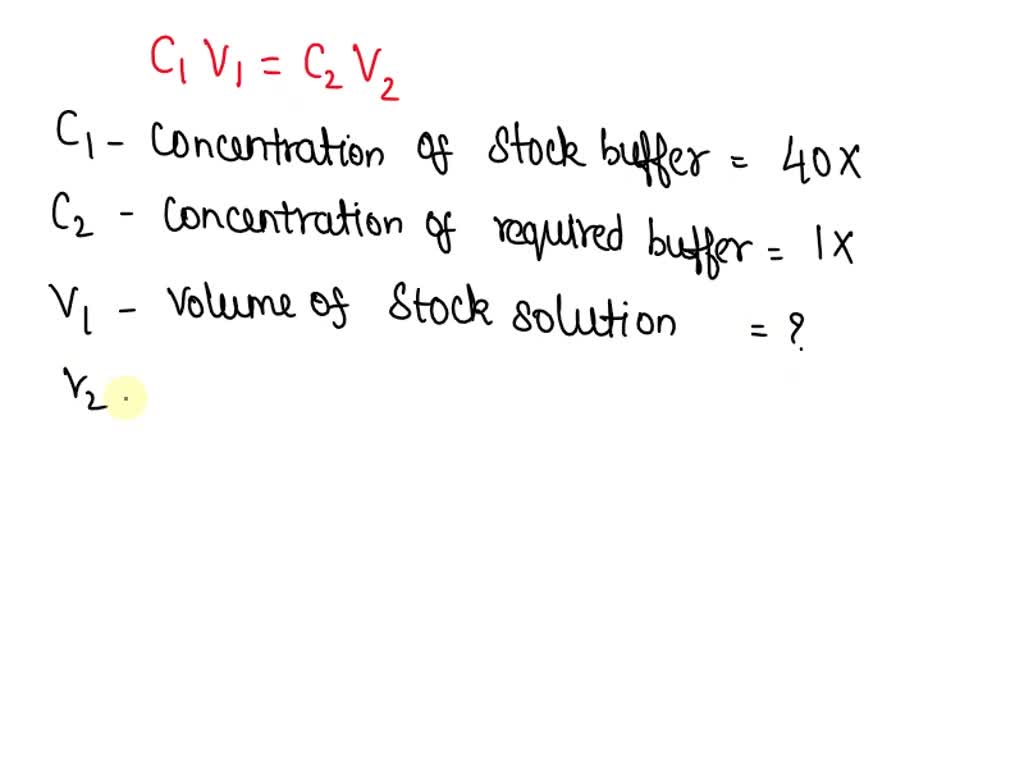 C₁ V₁ = C₂ V₂
C₁ - Concentration of Stock buffer = 40X
C₂ - Concentration of required buffer = 1X
V₁ - Volume of Stock solution = ?
V₂